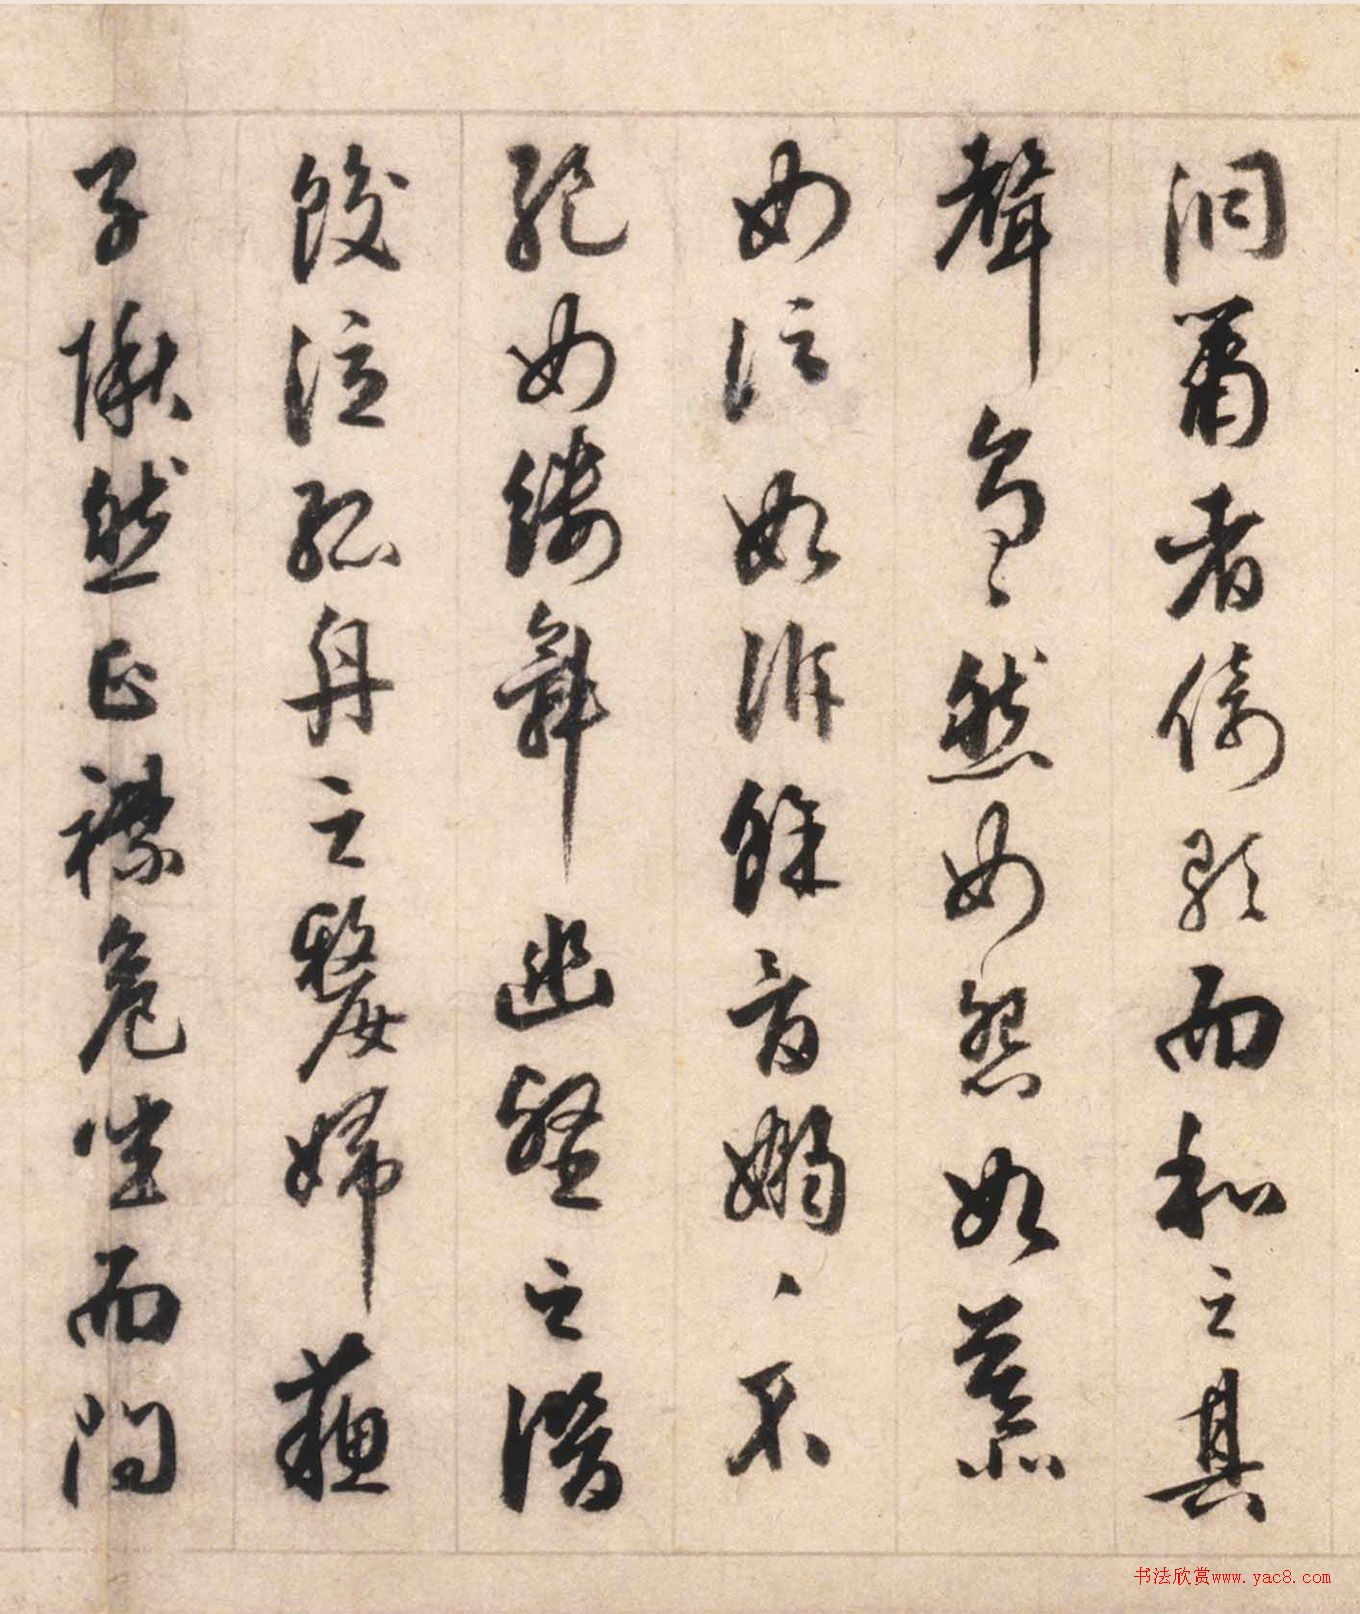 洞簫者倚歌而和之其
聲嗚々然如怨如慕
如泣如訴餘音嫋々不
絕如縷舞幽壑之潛
蛟泣孤舟之嫠婦蘇
子愀然正襟危坐而問
书法欣赏www.yac8.com